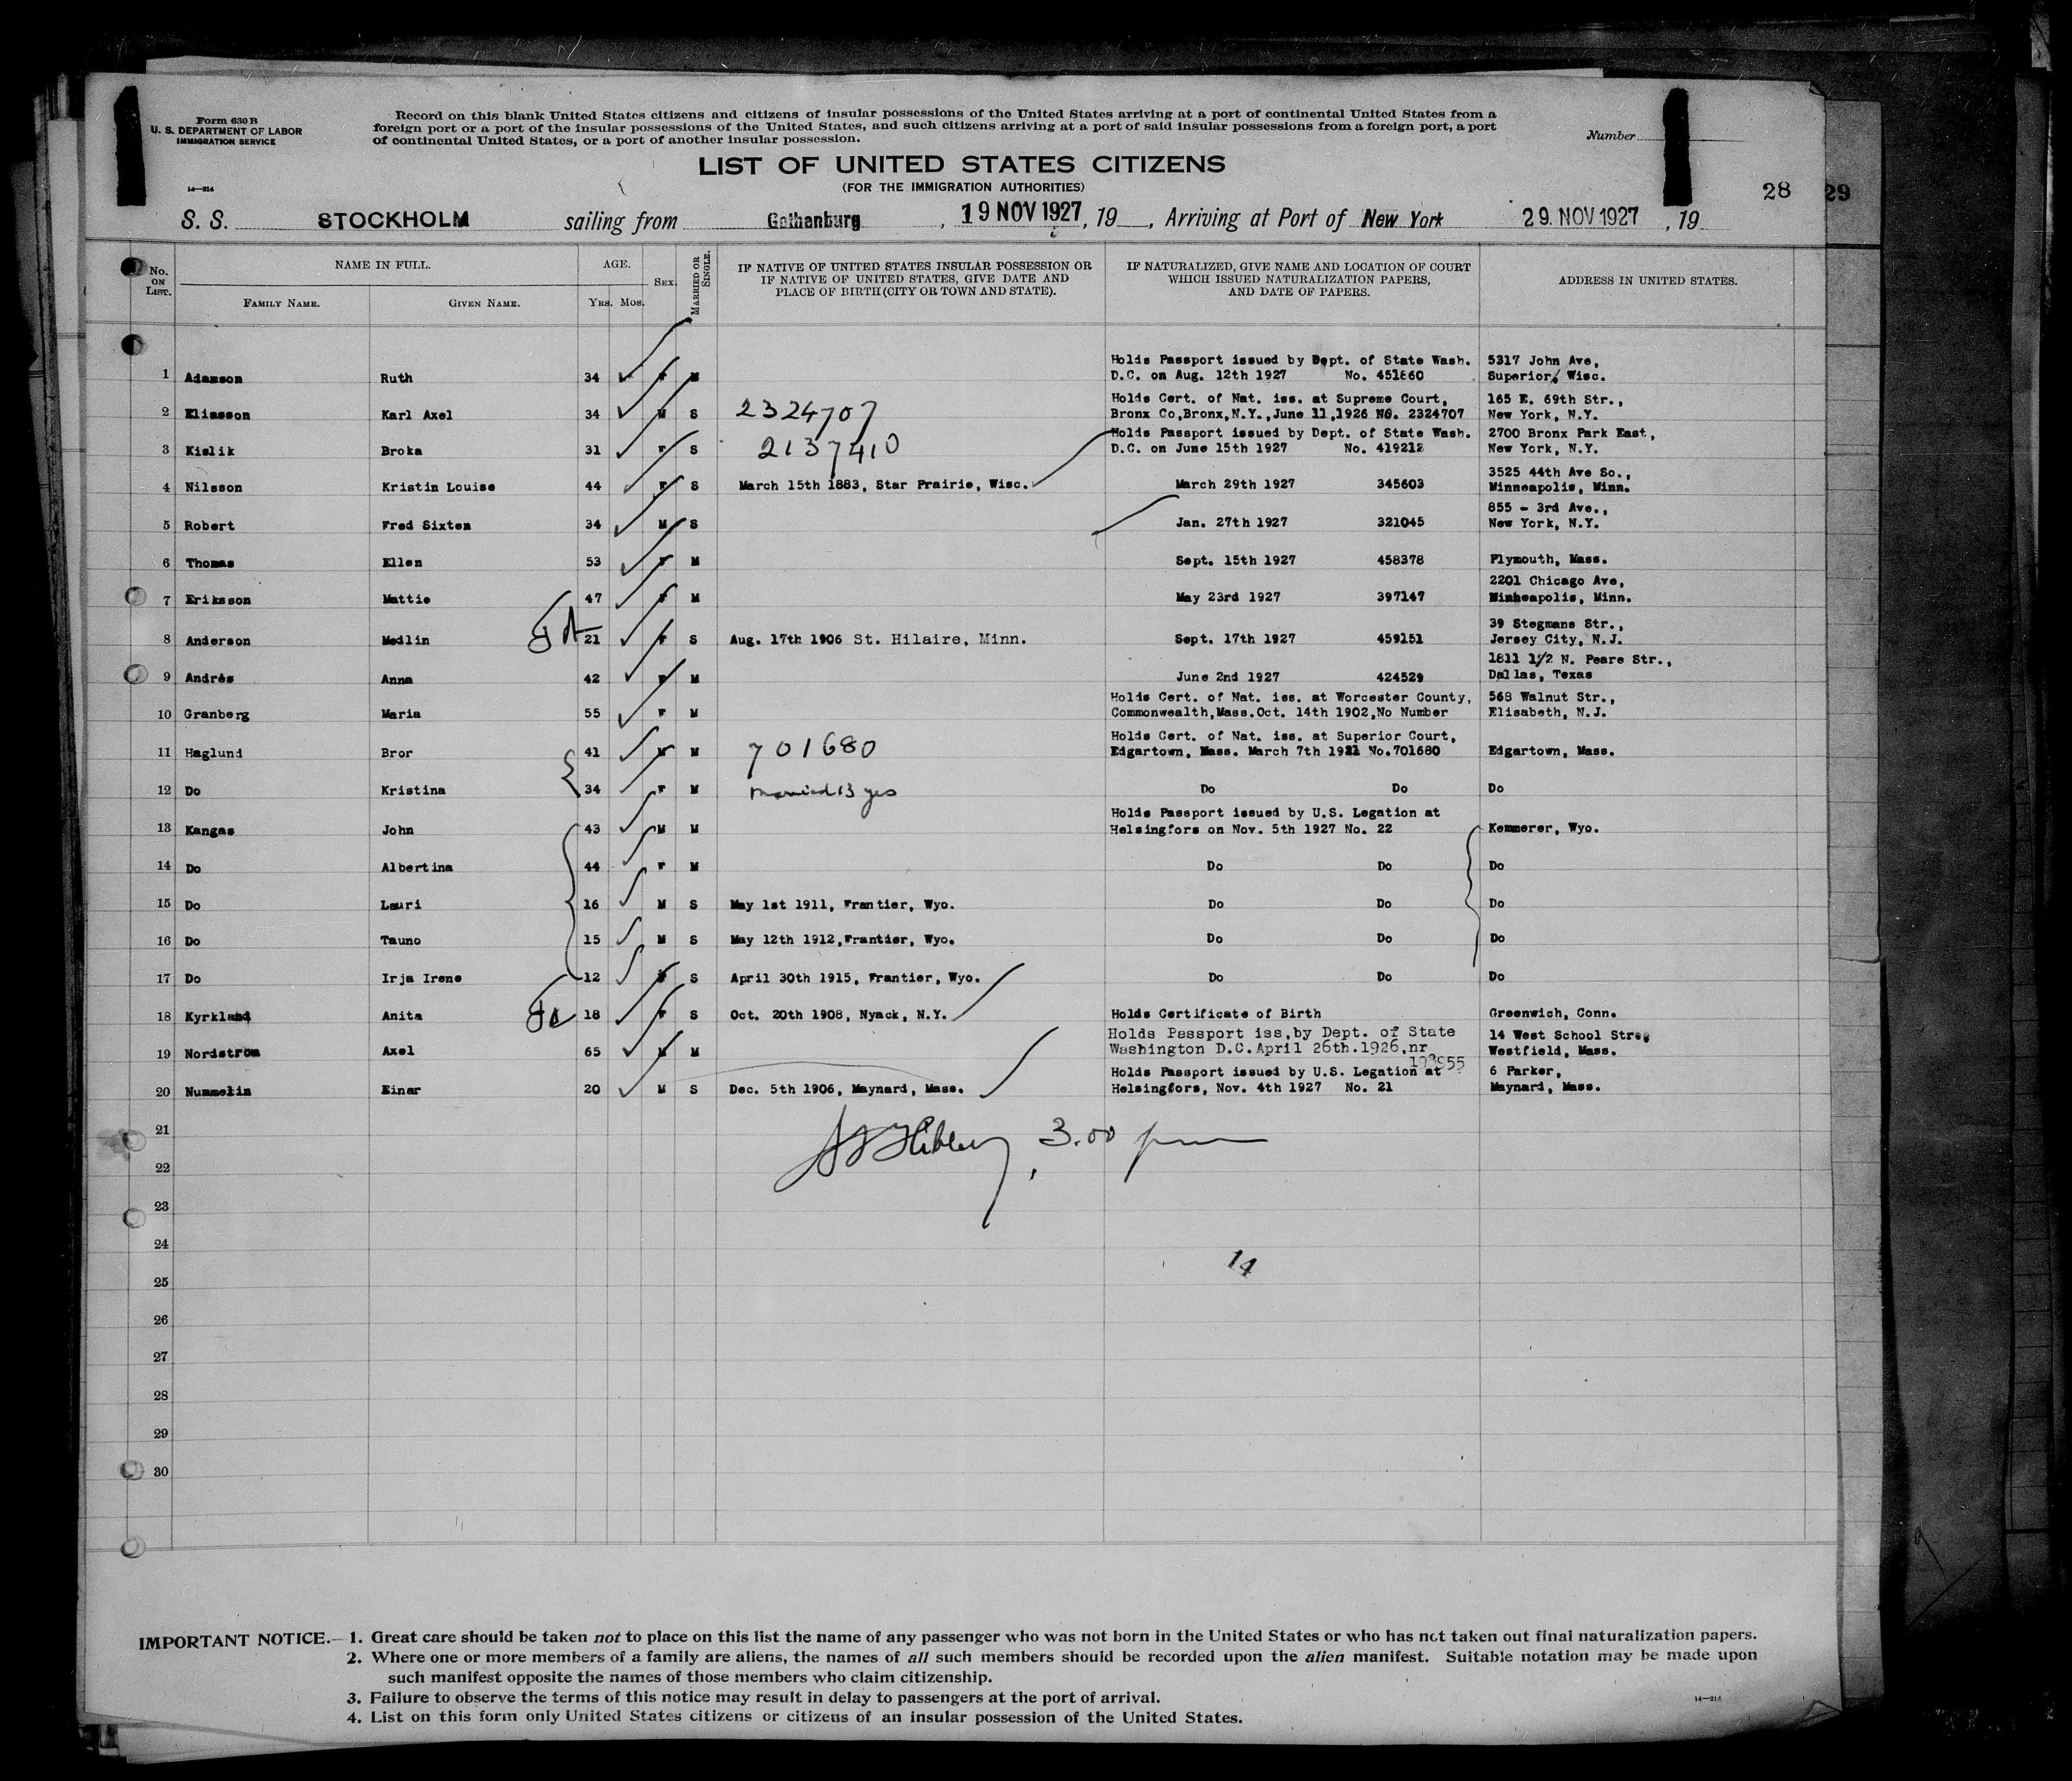 Form 630 B
U. S. DEPARTMENT OF LABOR
IMMIGRATION SERVICE
14—214
Record on this blank United States citizens and citizens of insular possessions of the United States arriving at a port of continental United States from a
foreign port or a port of the insular possessions of the United States, and such citizens arriving at a port of said insular possessions from a foreign port, a port
of continental United States, or a port of another insular possession.
Number
LIST OF UNITED STATES CITIZENS
(FOR THE IMMIGRATION AUTHORITIES)
28 29
S. S. STOCKHOLM sailing from Gothenburg, 19 NOV 1927, 19, Arriving at Port of New York 29. NOV 1927, 19
No. ON LIST.
NAME IN FULL.
FAMILY NAME. GIVEN NAME.
AGE.
YRS. MOS.
SEX.
MARRIED OR SINGLE.
IF NATIVE OF UNITED STATES INSULAR POSSESSION OR
IF NATIVE OF UNITED STATES, GIVE DATE AND
PLACE OF BIRTH (CITY OR TOWN AND STATE).
IF NATURALIZED, GIVE NAME AND LOCATION OF COURT
WHICH ISSUED NATURALIZATION PAPERS,
AND DATE OF PAPERS.
ADDRESS IN UNITED STATES.
Holds Passport issued by Dept. of State Wash. 5317 John Ave,
1 Adamson Ruth 34 F M D.C. on Aug. 12th 1927 No. 451860 Superior, Wisc.
Holds Cert. of Nat. iss. at Supreme Court, 165 E. 69th Str.,
2 Eliasson Karl Axel 34 M S 2324707 Bronx Co,Bronx,N.Y.,June 11,1926 No. 2324707 New York, N.Y.
Holds Passport issued by Dept. of State Wash. 2700 Bronx Park East,
3 Kislik Broka 31 F S 2137410 D.C. on June 15th 1927 No. 419212 New York, N.Y.
3525 44th Ave So.,
4 Nilsson Kristin Louise 44 F S March 15th 1883, Star Prairie, Wisc. March 29th 1927 345603 Minneapolis, Minn.
855 - 3rd Ave.,
5 Robert Fred Sixten 34 M S Jan. 27th 1927 321045 New York, N.Y.
6 Thomas Ellen 53 F M Sept. 15th 1927 458378 Plymouth, Mass.
2201 Chicago Ave,
7 Eriksson Mattie 47 F M May 23rd 1927 397147 Minneapolis, Minn.
39 Stegmans Str.,
8 Anderson Medlin 21 F S Aug. 17th 1906 St. Hilaire, Minn. Sept. 17th 1927 459151 Jersey City, N.J.
1811 1/2 N. Peare Str.,
9 Andrés Anna 42 F M June 2nd 1927 424529 Dallas, Texas
Holds Cert. of Nat. iss. at Worcester County, 568 Walnut Str.,
10 Granberg Maria 55 F M Commonwealth,Mass.Oct. 14th 1902,No Number Elisabeth, N.J.
Holds Cert. of Nat. iss. at Superior Court,
11 Haglund Bror 41 M M 701680 Edgartown, Mass. March 7th 1921 No.701680 Edgartown, Mass.
12 Do Kristina 34 F M married 13 yrs Do Do Do
Holds Passport issued by U.S. Legation at
13 Kangas John 43 M M Helsingfors on Nov. 5th 1927 No. 22 Kemmerer, Wyo.
14 Do Albertina 44 F M Do Do Do
15 Do Lauri 16 M S May 1st 1911, Frantier, Wyo. Do Do Do
16 Do Tauno 15 M S May 12th 1912,Frantier, Wyo. Do Do Do
17 Do Irja Irene 12 F S April 30th 1915, Frantier, Wyo. Do Do Do
18 Kyrkland Anita 18 F S Oct. 20th 1908, Nyack, N.Y. Holds Certificate of Birth Greenwich, Conn.
Holds Passport iss,by Dept. of State 14 West School Street
19 Nordstrom Axel 65 M M Washington D.C.April 26th.1926,nr Westfield, Mass.
Holds Passport issued by U.S. Legation at 6 Parker,
20 Nummelin Einar 20 M S Dec. 5th 1906, Maynard, Mass. Helsingfors, Nov. 4th 1927 No. 21 Maynard, Mass.
21
3.00 pm
22
23
24
14
25
26
27
28
29
30
IMPORTANT NOTICE.—1. Great care should be taken not to place on this list the name of any passenger who was not born in the United States or who has not taken out final naturalization papers.
2. Where one or more members of a family are aliens, the names of all such members should be recorded upon the alien manifest. Suitable notation may be made upon
such manifest opposite the names of those members who claim citizenship.
3. Failure to observe the terms of this notice may result in delay to passengers at the port of arrival.
4. List on this form only United States citizens or citizens of an insular possession of the United States.
14—214